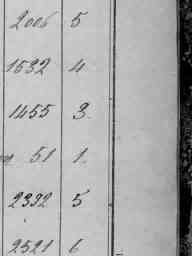 2006 5
1532 4
1455 3
51 1
2392 5
2521 6